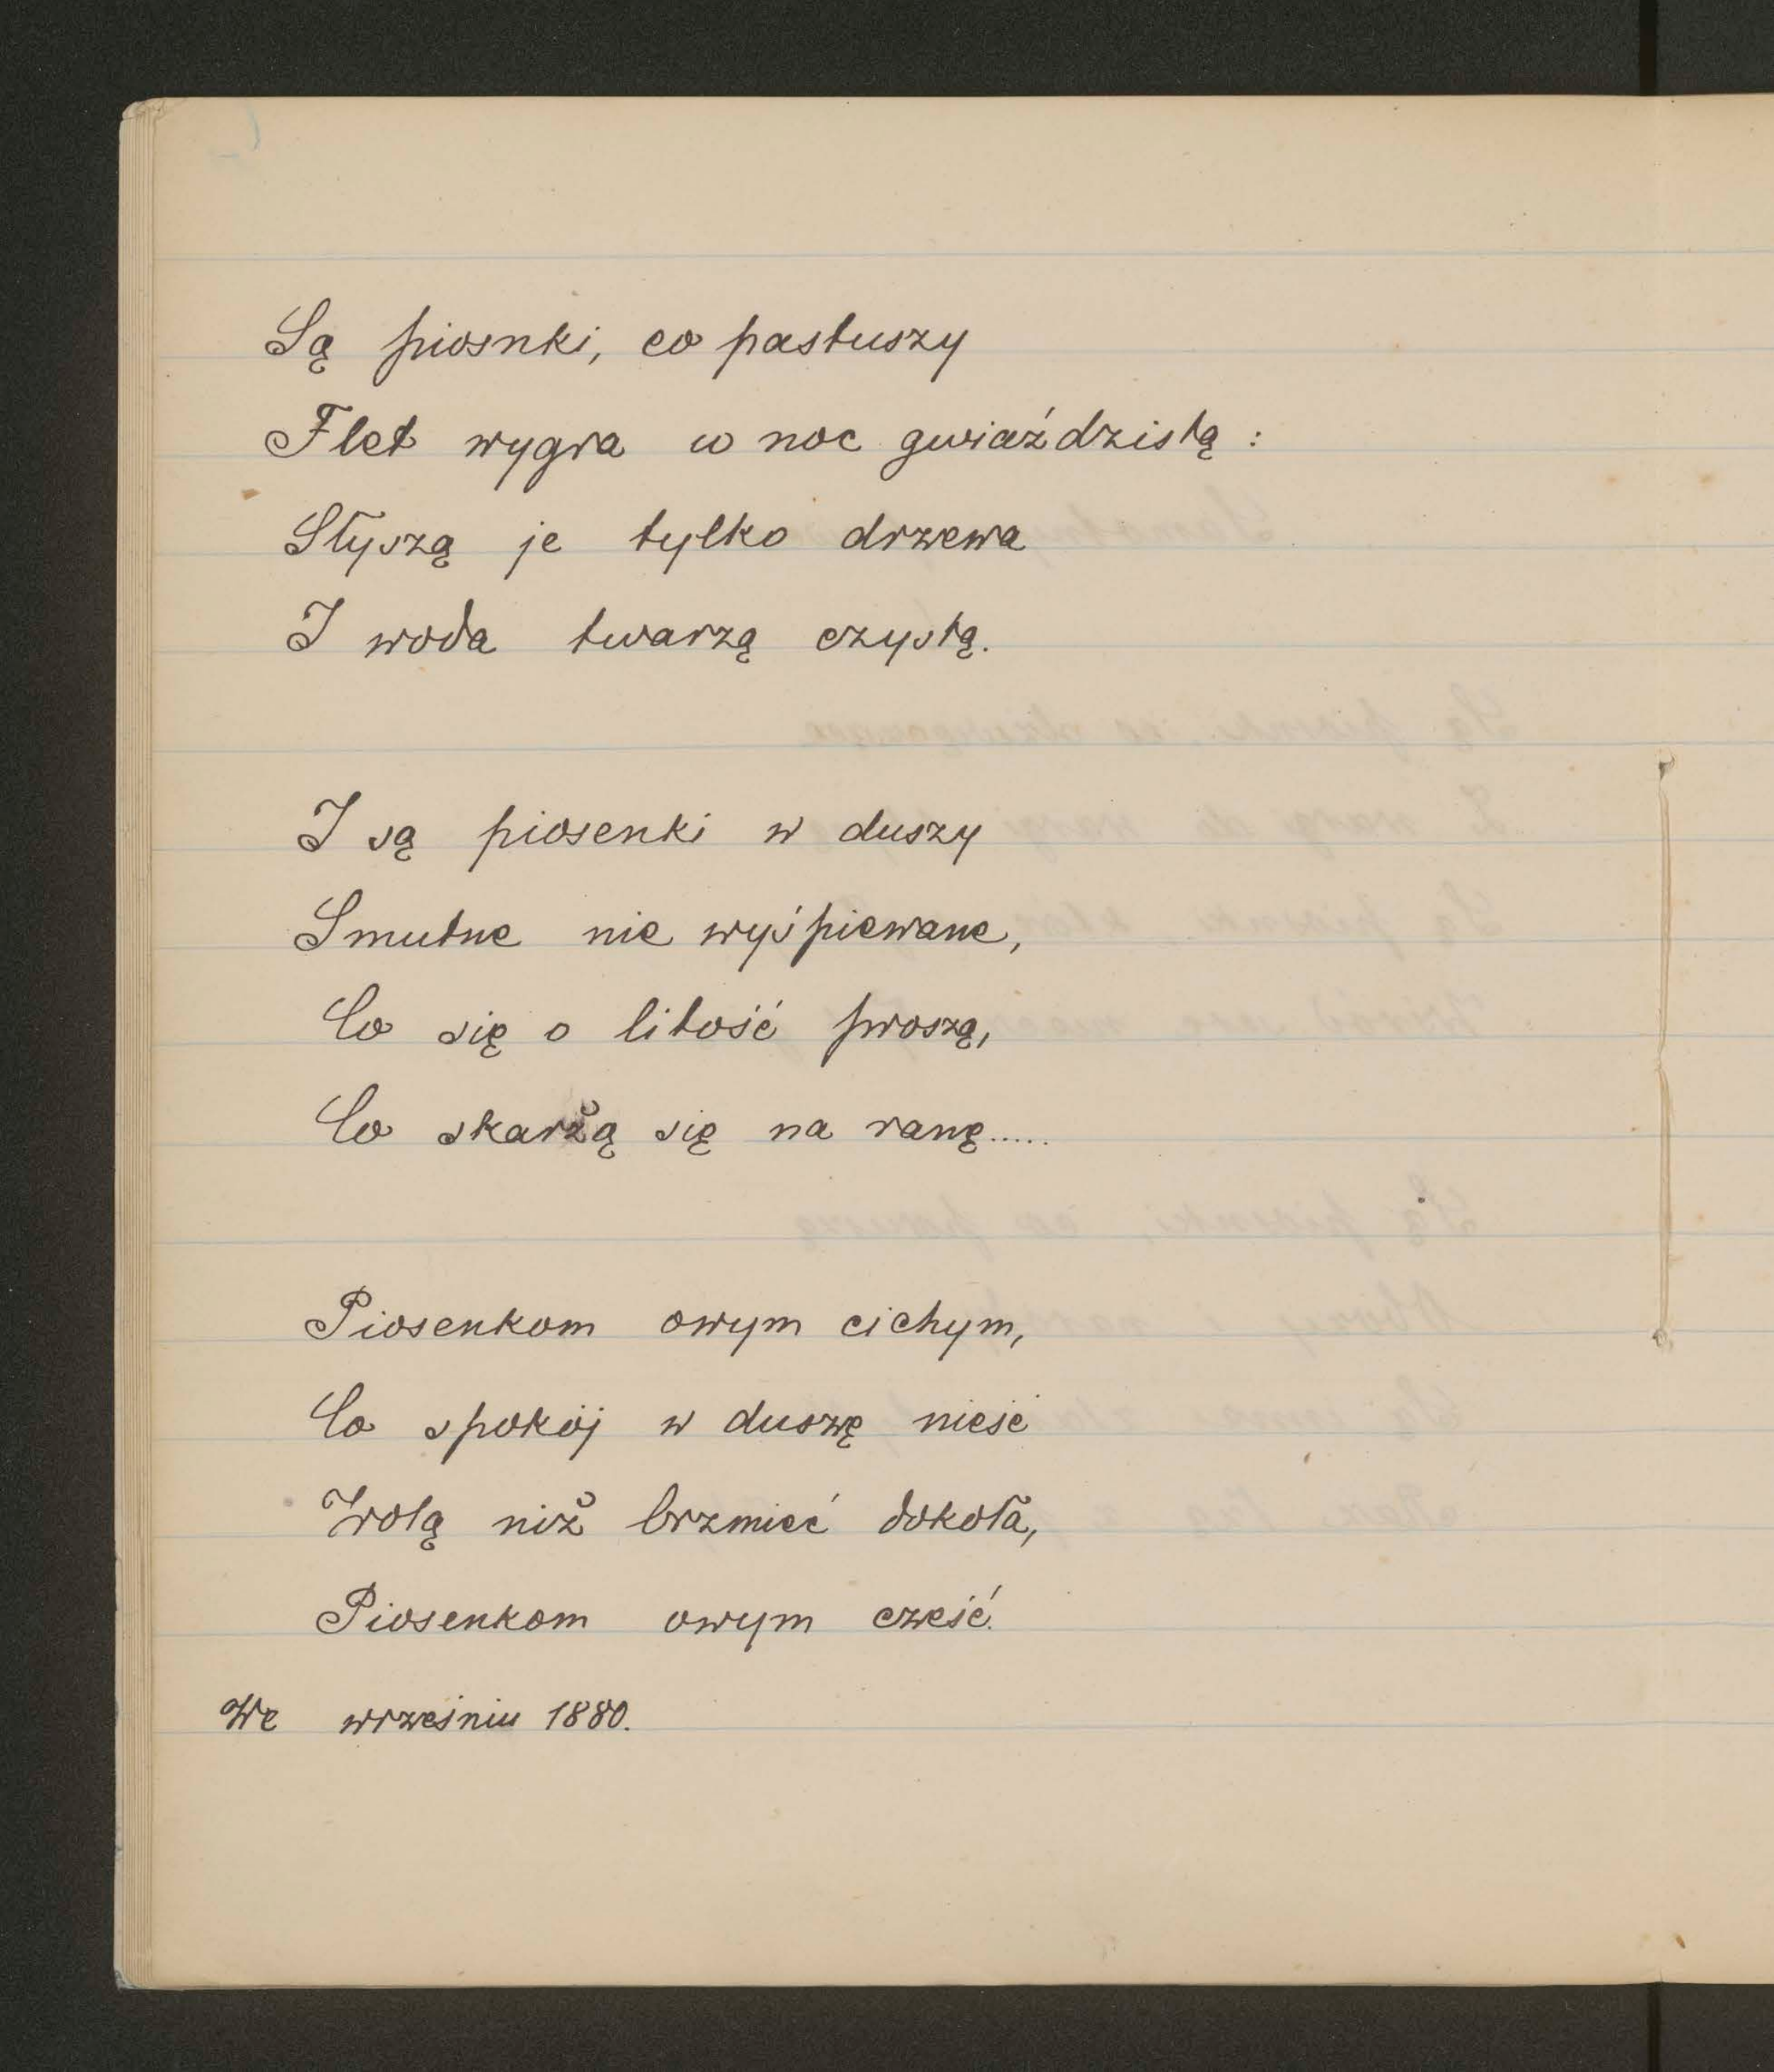 Są piosnki, co pastuszy
Flet wygra w noc gwiaździstą:
Słyszą je tylko drzewa
I woda twarzą czystą.
I są piosenki w duszy
Smutne nie wyśpiewane,
Co się o litość proszą,
Co skarżą się na ranę.....
Piosenkom owym cichym,
Co spokój w duszę nieść
Wolą niż brzmieć dokoła,
Piosenkom owym cześć.
We wrześniu 1880.